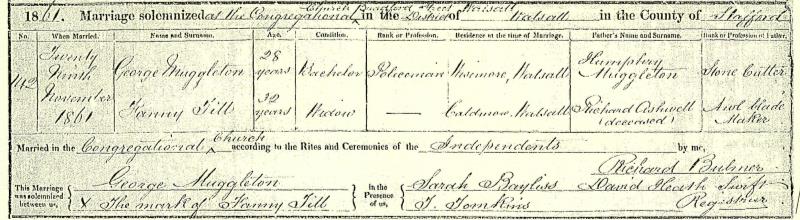 1861. Marriage solemnized at the Congregational Church Bradford Street Walsall in the District of Walsall in the County of Stafford
No. When Married. Name and Surname. Age. Condition. Rank or Profession. Residence at the time of Marriage. Father's Name and Surname. Rank or Profession of Father.
142 Twenty Ninth November 1861
George Muggleton 28 years Bachelor Policeman Walsall Humphry Muggleton Stone Cutter
Fanny Till 32 years Widow — Caldmore, Walsall Richard Ashwell (deceased) Awl blade Maker
Married in the Congregational Church according to the Rites and Ceremonies of the Independents by me,
Richard Bulmer
This Marriage was solemnized between us, George Muggleton
X The mark of Fanny Till
in the Presence of us, Sarah Bayliss
T. Tomkins
David Heath Swift
Registrar